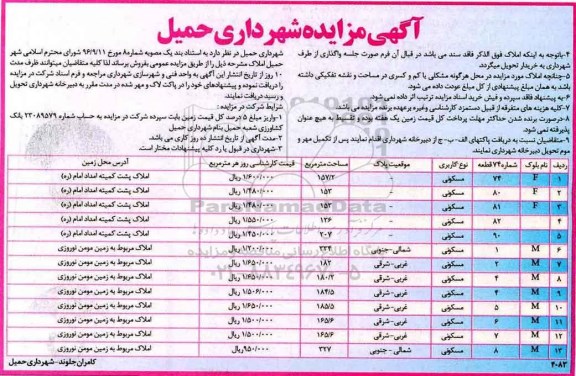 آگهی مزایده شهرداری حمیل
شهرداری حمیل در نظر دارد به استناد بند یک مصوبه شماره ۸ مورخ ۹۶/۹/۱۱ شورای محترم اسلامی شهر
حمیل املاک مشرحه ذیل را از طریق مزایده عمومی بفروش برساند لذا کلیه متقاضیان میتوانند ظرف مدت
۱۰ روز از تاریخ انتشار این آگهی به واحد فنی و شهرسازی شهرداری مراجعه و فرم اسناد شرکت در مزایده
را دریافت نموده و پیشنهادهای خود را در پاکت لاک و مهر شده در مدت مقرر به دبیرخانه شهرداری تحویل
و رسید دریافت نمایند.
شرایط شرکت در مزایده :
۱-واریز مبلغ ۵ درصد کل قیمت زمین بابت سپرده شرکت در مزایده به حساب شماره ۲۲۰۸۹۵۷۹ بانک
کشاورزی شعبه حمیل بنام شهرداری حمیل
۲-مدت آگهی از تاریخ انتشار ده روز کاری می باشد.
۳-شهرداری در قبول یا رد کلیه پیشنهادات مختار است.
۴-باتوجه به اینکه املاک فوق الذکر فاقد سند می باشد در قبال آن فرم صورت جلسه واگذاری از طرف
شهرداری به خریدار تحویل میگردد.
۵-چنانچه املاک مورد مزایده در محل هرگونه مشکلی یا کم و کسری در مساحت و نقشه تفکیکی داشته
باشد به همان مبلغ پیشنهادی از کل مبلغ عودت داده می شود.
۶-به پیشنهاد فاقد سپرده و فیش خرید اسناد مزایده ترتیب اثر داده نمی شود.
۷-کلیه هزینه های متفرقه از قبیل دستمزد کارشناسی وغیره برعهده برنده مزایده می باشد.
۸-درصورت برنده شدن حداکثر مهلت پرداخت کل قیمت زمین یک هفته بوده و تقسیط به هیچ عنوان
پذیرفته نمی شود.
۹-متقاضیان نسبت به دریافت پاکتهای الف-ب-ج از دبیرخانه شهرداری اقدام نمایند پس از تکمیل مهر و
موم تحویل دبیرخانه شهرداری نمایند.
ردیف نام بلوک شماره قطعه نوع کاربری موقعیت پلاک مساحت مترمربع قیمت کارشناسی روز هر مترمربع آدرس محل زمین
۱ F ۷۴ مسکونی - ۱۵۷/۲ ۱/۶۰۰/۰۰۰ ریال املاک پشت کمیته امداد امام (ره)
۲ F ۸۰ مسکونی - ۱۵۳ ۱/۴۸۰/۰۰۰ ریال املاک پشت کمیته امداد امام (ره)
۳ F ۸۱ مسکونی - ۱۵۳ ۱/۴۸۰/۰۰۰ ریال املاک پشت کمیته امداد امام (ره)
۴ ۸۲ مسکونی - ۱۳۶ ۱/۵۵۰/۰۰۰ ریال املاک پشت کمیته امداد امام (ره)
۵ ۹۰ مسکونی - ۲۰۷ ۱/۴۵۰/۰۰۰ ریال املاک پشت کمیته امداد امام (ره)
۶ M ۱ مسکونی شمالی-جنوبی ۲۳۴ ۱/۲۰۰/۰۰۰ ریال املاک مربوط به زمین مومن نوروزی
۷ M ۲ مسکونی غربی-شرقی ۱۸۲ ۱/۶۵۰/۰۰۰ ریال املاک مربوط به زمین مومن نوروزی
۸ M ۴ مسکونی غربی-شرقی ۱۸۰/۲ ۱/۶۵۰/۰۰۰ ریال املاک مربوط به زمین مومن نوروزی
۹ M ۴ مسکونی غربی-شرقی ۱۸۴/۵ ۱/۵۰۶/۰۰۰ ریال املاک مربوط به زمین مومن نوروزی
۱۰ M ۵ مسکونی غربی-شرقی ۱۸۵/۵ ۱/۶۵۰/۰۰۰ ریال املاک مربوط به زمین مومن نوروزی
۱۱ M ۶ مسکونی غربی-شرقی ۱۶۵/۶ ۱/۵۰۰/۰۰۰ ریال املاک مربوط به زمین مومن نوروزی
۱۲ M ۷ مسکونی غربی-شرقی ۱۶۵/۶ ۱/۵۰۰/۰۰۰ ریال املاک مربوط به زمین مومن نوروزی
۱۳ M ۸ مسکونی شمالی - جنوبی ۲۲۷ ۹۵۰/۰۰۰ ریال املاک مربوط به زمین مومن نوروزی
۴۰۸۲
کامران جلوند-شهرداری حمیل